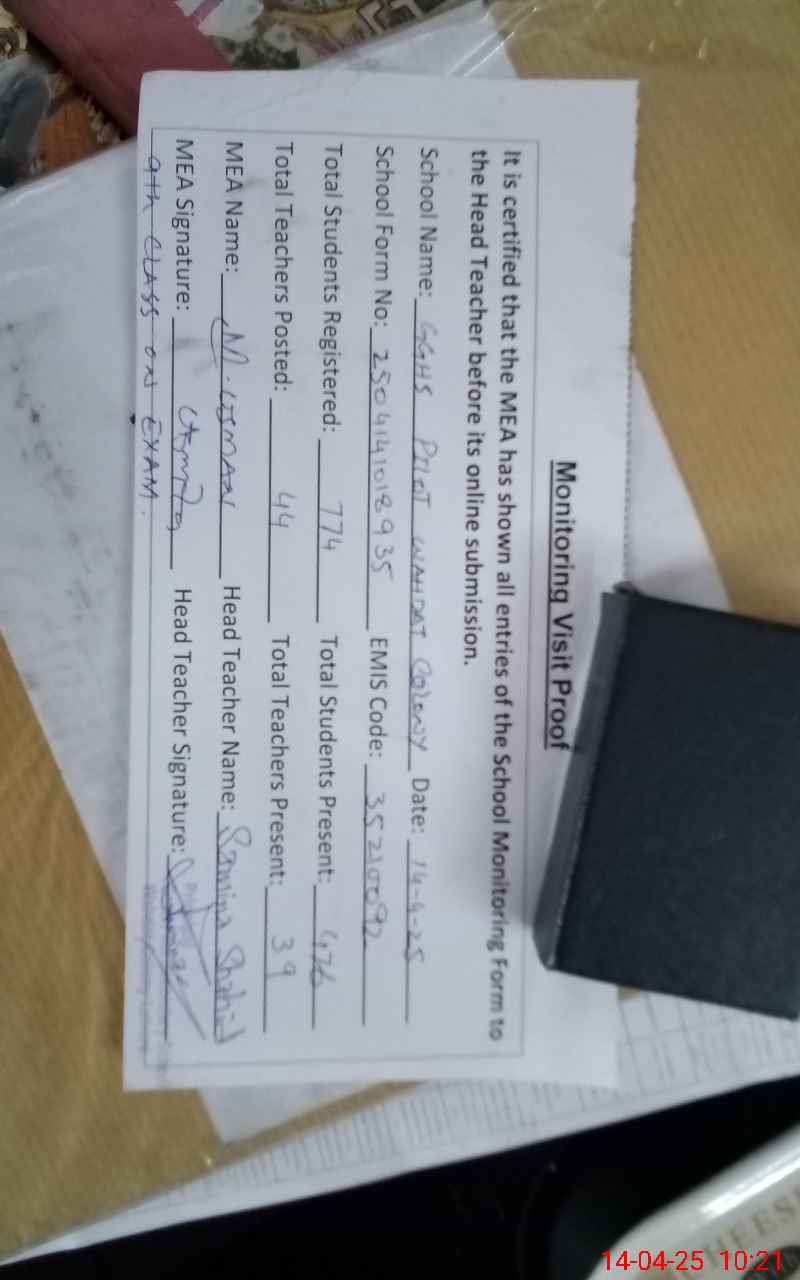 Monitoring Visit Proof
It is certified that the MEA has shown all entries of the School Monitoring Form to
the Head Teacher before its online submission.
School Name: GGHS PILOT WAHDAT COLONY Date: 14-4-25
School Form No: 2504141018935 EMIS Code: 35210092
Total Students Registered: 774 Total Students Present: 476
Total Teachers Posted: 44 Total Teachers Present: 39
MEA Name: M. USMAN Head Teacher Name: Samina Shahid
MEA Signature: Head Teacher Signature:
9th CLASS ON EXAM.
14-04-25 10:21